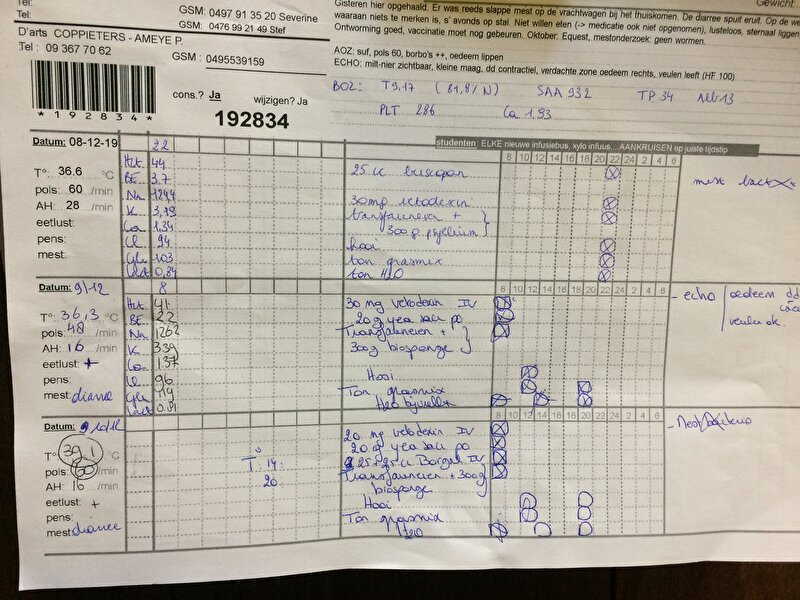 Tel:
Tel:
GSM: 0497 91 35 20 Severine
GSM: 0476 99 21 49 Stef
D'arts COPPIETERS - AMEYE P.
Tel : 09 367 70 62
GSM : 0495539159
Gewicht
Gisteren hier opgehaald. Er was reeds slappe mest op de vrachtwagen bij het thuiskomen. De diarree spuit eruit. Op de we
waaraan niets te merken is, s' avonds op stal. Niet willen eten (-> medicatie ook niet opgenomen), lusteloos, sternaal liggen
Ontworming goed, vaccinatie moet nog gebeuren. Oktober: Equest, mestonderzoek: geen wormen.
AOZ: suf, pols 60, borbo's ++, oedeem lippen
ECHO: milt-nier zichtbaar, kleine maag, dd contractiel, verdachte zone oedeem rechts, veulen leeft (HF 100)
*192834*
cons.? Ja
wijzigen? Ja
192834
BOZ: T9,17 (81,8% N) SAA 932 TP 34 Alb 13
PLT 286 Ca 1,93
studenten: ELKE nieuwe infusiebus, xylo infuus,...AANKRUISEN op juiste tijdstip
Datum: 08-12-19
22
8 10 12 14 16 18 20 22 24 2 4 6
T°: 36.6 °C
pols: 60 /min
AH: 28 /min
eetlust:
pens:
mest:
Hct 44
BE 3,7
Na 124,4
K 3,19
Ca 1,34
Cl 94
Glu 103
Lact 0,84
25 cc buscopan
30mg vetodexin
transfauneren +
300g psyllium
hooi
ton grasmix
ton H2O
mest bact
Datum: 9/12
8
8 10 12 14 16 18 20 22 24 2 4 6
T°: 36,3 °C
pols: 48 /min
AH: 16 /min
eetlust: +
pens:
mest: diarree
Hct 41
BE 2,2
Na 126,2
K 3,39
Ca 1,37
Cl 96
Glu 119
Lact 0.81
30 mg vetodexin IV
20 g yea sau po
Transfauneren +
300g biosponge
Hooi
Ton grasmix
H2O bijvullen
- echo oedeem dd
veulen ok
Datum: 10/12
8 10 12 14 16 18 20 22 24 2 4 6
T°: 39,1 °C
pols: 60 /min
AH: 16 /min
eetlust: +
pens:
mest: diarree
T° 14:
20:
20 mg vetodexin IV
20 g yea sau po
25 cc Borgal IV
Transfauneren + 300g
biosponge
Hooi
Ton grasmix
H2O